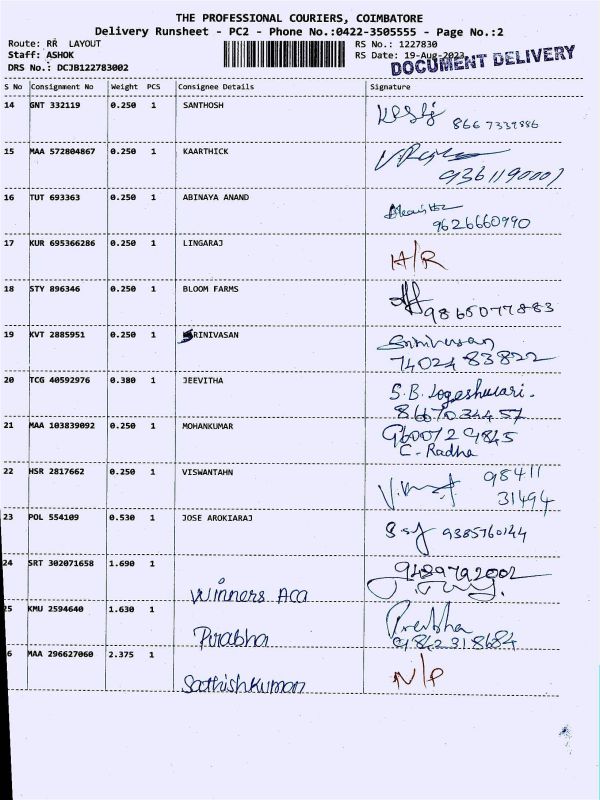 THE PROFESSIONAL COURIERS, COIMBATORE
Delivery Runsheet - PC2 - Phone No.:0422-3505555 - Page No.:2
Route: RR LAYOUT
Staff: ASHOK
DRS No.: DCJB122783002
RS No.: 1227830
RS Date: 19-Aug-2023
DOCUMENT DELIVERY
S No Consignment No Weight PCS Consignee Details Signature
14 GNT 332119 0.250 1 SANTHOSH
15 MAA 572804867 0.250 1 KAARTHICK
9361190001
16 TUT 693363 0.250 1 ABINAYA ANAND
9626660990
17 KUR 695366286 0.250 1 LINGARAJ H/R
18 STY 896346 0.250 1 BLOOM FARMS
9865077883
19 KVT 2885951 0.250 1 SRINIVASAN Srinivasan
74024 83822
20 TCG 40592976 0.380 1 JEEVITHA S.B. Logeshwari.
8667034457
21 MAA 103839092 0.250 1 MOHANKUMAR 9600729845
C. Radha
22 HSR 2817662 0.250 1 VISWANTAHN 98411
31494
23 POL 554109 0.530 1 JOSE AROKIARAJ 9385760144
24 SRT 302071658 1.690 1 9489792002
Winners Aca
25 KMU 2594640 1.630 1 Prabha
Prabha 9842318684
6 MAA 296627060 2.375 1 N/P
Sathishkumar